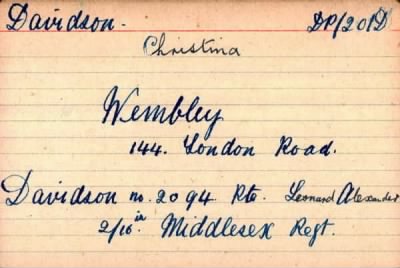 Davidson. DP/201D
Christina
Wembley
144. London Road.
Davidson no. 2094 Pte. Leonard Alexander
2/10 in Middlesex Regt.